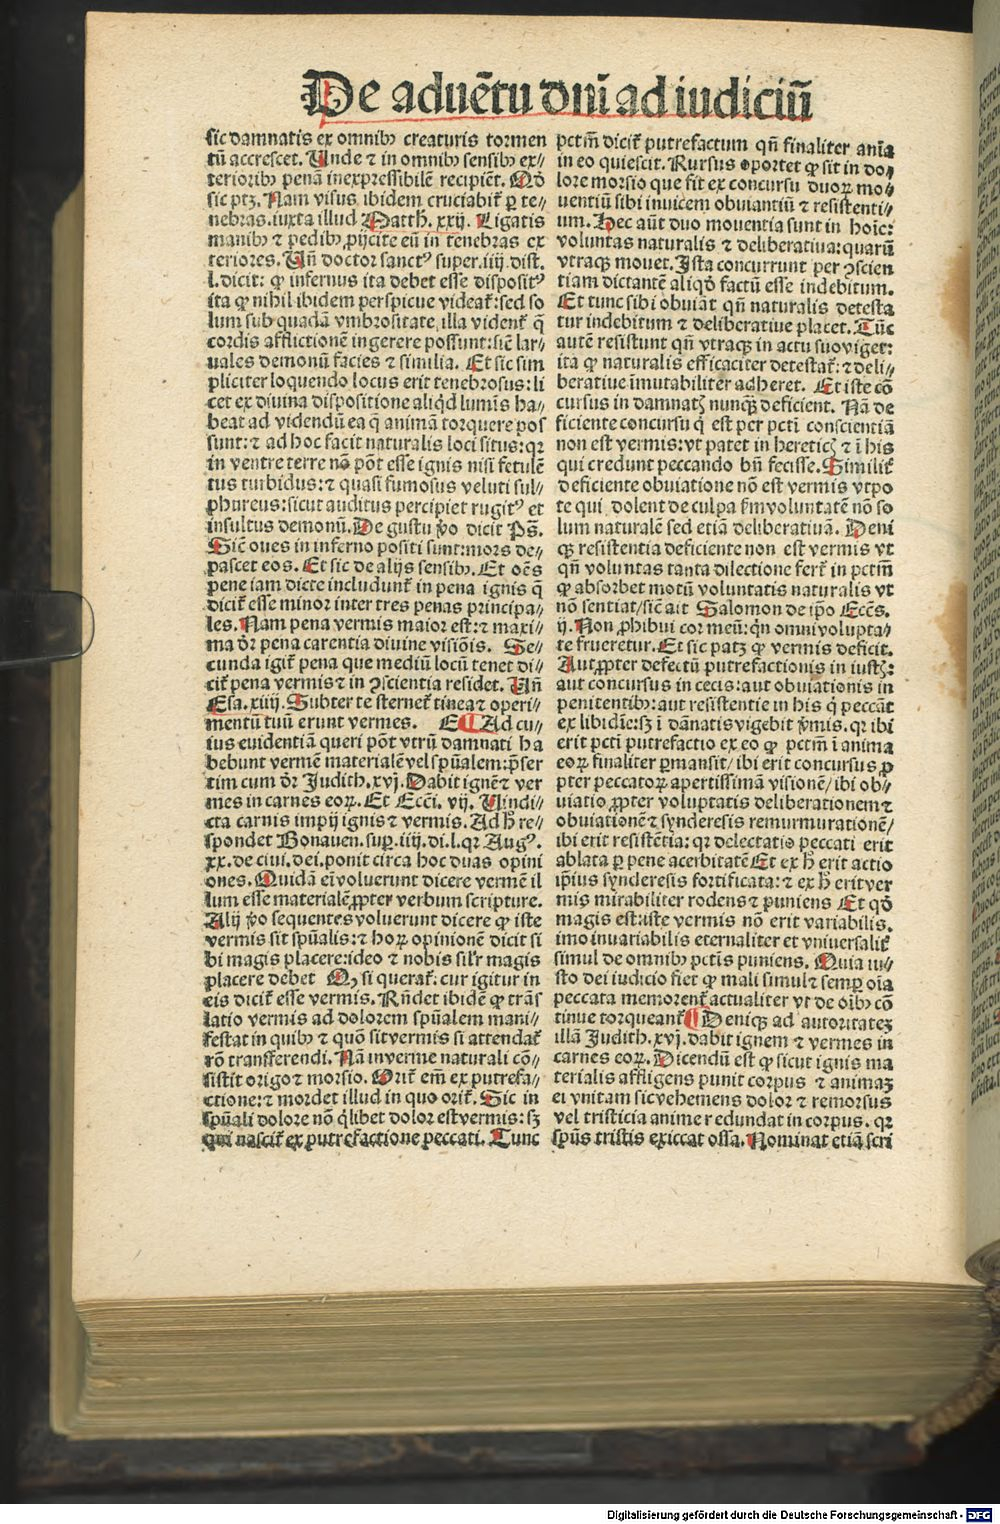 De aduētu dnī ad iudiciū
sic damnatis ex omnibꝫ creaturis tormen
tū accrescet. Unde ⁊ in omnibꝫ sensibꝫ ex//
terioribꝫ penā inexpressibilē recipiēt. Qd̄
sic ptꝫ. Nam visus ibidem cruciabit᷑ ꝑ te//
nebras. iuxta illud Matth. xxij. Ligatis
manibꝫ ⁊ pedibꝫ ꝓijcite eū in tenebras ex
teriores. Un̄ doctor sanctꝰ super. iiij. dist.
l. dicit: ꝙ infernus ita debet esse dispositꝰ
ita ꝙ nihil ibidem perspicue videat᷑: sed so
lum sub quadā vmbrositate, illa vident᷑ q̄
cordis afflictionē ingerere possunt: sic̄ lar//
uales demonū facies ⁊ similia. Et sic sim
pliciter loquendo locus erit tenebrosus: li
cet ex diuina dispositione aliqd lumīs ha//
beat ad videndū ea q̄ animā torquere pos
sunt: ⁊ ad hoc facit naturalis loci situs: qꝛ
in ventre terre nō pōt esse ignis nisi fetulē
tus turbidus: ⁊ quasi fumosus veluti sul//
phureus: sicut auditus percipiet rugitꝰ et
insultus demonū. De gustu v̄o dicit Ps̄.
Sic̄ oues in inferno positi sunt: mors de//
pascet eos. Et sic de alijs sensibꝫ. Et oēs
pene iam dicte includunt᷑ in pena ignis q̄
dicit᷑ esse minor inter tres penas principa//
les. Nam pena vermis maior est: ⁊ maxi//
ma dr̄ pena carentia diuine visiōis. Se//
cunda igit᷑ pena que mediū locū tenet di//
cit᷑ pena vermis ⁊ in ꝯscientia residet. Un̄
Esa. xiiij. Subter te sternet᷑ tinea ⁊ operi//
mentū tuū erunt vermes. E ¶ Ad cu//
ius euidentiā queri pōt vtrū damnati ha
bebunt vermē materialē vel spūalem: p̄ser
tim cum dr̄ Judith. xvj. Dabit ignē ⁊ ver
mes in carnes eoꝝ. Et Ecci. vij. Uindi//
cta carnis impij ignis ⁊ vermis. Ad h̄ re//
spondet Bonauen. suꝑ. iiij. di. l. qꝛ Augꝰ.
xx. de ciui. dei. ponit circa hoc duas opini
ones. Quidā eī voluerunt dicere vermē il
lum esse materialē ꝓpter verbum scripture.
Alij v̄o sequentes voluerunt dicere ꝙ iste
vermis sit spūalis: ⁊ hoꝝ opinionē dicit si
bi magis placere: ideo ⁊ nobis sil'r magis
placere debet Qꝫ si querat᷑: cur igitur in
eis dicit᷑ esse vermis. Rn̄det ibidē ꝙ trās
latio vermis ad dolorem spūalem mani//
festat in quibꝫ ⁊ quō sit vermis si attendat᷑
rō transferendi. Nā in verme naturali cō//
sistit origo ⁊ morsio. Orit᷑ em̄ ex putrefa//
ctione: ⁊ mordet illud in quo orit᷑. Sic in
spūali dolore nō qlibet dolor est vermis: sꝫ
qui nascit᷑ ex putrefactione peccati. Tunc
pctm̄ dicit᷑ putrefactum qn̄ finaliter anīa
in eo quiescit. Rursus oportet ꝙ sit in do//
lore morsio que fit ex concursu duoꝝ mo//
uentiū sibi inuicem obuiantiū ⁊ resistenti//
um. Hec aūt duo mouentia sunt in hoīe:
voluntas naturalis ⁊ deliberatiua: quarū
vtraqꝫ mouet. Ista concurrunt per ꝯscien
tiam dictantē aliqd factū esse indebitum.
Et tunc sibi obuiāt qn̄ naturalis detesta
tur indebitum ⁊ deliberatiue placet. Tūc
autē resistunt qn̄ vtraqꝫ in actu suo viget:
ita ꝙ naturalis efficaciter detestat᷑: ⁊ deli//
beratiue īmutabiliter adheret. Et iste cō
cursus in damnatꝭ nunqꝫ deficient. Nā de
ficiente concursu qi est per pcti conscientiā
non est vermis: vt patet in hereticꝭ ⁊ ī his
qui credunt peccando bn̄ fecisse. Similit᷑
deficiente obuiatione nō est vermis vtpo
te qui dolent de culpa fm voluntatē nō so
lum naturalē sed etiā deliberatiuā. Deni
qꝫ resistentia deficiente non est vermis vt
qn̄ voluntas tanta dilectione fert᷑ in pctm̄
ꝙ absorbet motū voluntatis naturalis vt
nō sentiat/ sic̄ ait Salomon de ip̄o Eccs̄.
ij. Non ꝓhibui cor meū: qn omni volupta//
te frueretur. Et sic patꝫ ꝙ vermis deficit.
Aut ꝓpter defectū putrefactionis in iustꝭ:
aut concursus in cecis: aut obuiationis in
penitentibꝫ: aut resistentie in his q̄ peccāt
ex libidīe: sꝫ ī dānatis vigebit v̄mis. qꝛ ibi
erit pcti putrefactio ex eo ꝙ pctm̄ ī anima
eoꝝ finaliter ꝑmansit/ ibi erit concursus ꝓ
pter peccatoꝝ apertissimā visionē/ ibi ob//
uiatio ꝓpter voluptatis deliberationem ⁊
obuiationē ⁊ synderesis remurmurationē/
ibi erit resistētia: qꝛ delectatio peccati erit
ablata ꝑ pene acerbitatē Et ex h̄ erit actio
ip̄ius synderesis fortificata: ⁊ ex h̄ erit ver
mis mirabiliter rodens ⁊ puniens Et qd̄
magis est: iste vermis nō erit variabilis.
imo inuariabilis eternaliter et vniuersalit᷑
simul de omnibꝫ pctis puniens. Quia iu//
sto dei iudicio fiet ꝙ mali simul ⁊ semꝑ oīa
peccata memorent᷑ actualiter vt de oibꝫ cō
tinue torqueant᷑ ¶ Deniqꝫ ad autoritateꝫ
illā Judith. xvj. dabit ignem ⁊ vermes in
carnes eoꝝ. Dicendū est ꝙ sicut ignis ma
terialis affligens punit corpus ⁊ animaꝫ
ei vnitam sic vehemens dolor ⁊ remorsus
vel tristicia anime redundat in corpus. qꝛ
spūs tristis exiccat ossa. Nominat etiā scri
Digitalisierung gefördert durch die Deutsche Forschungsgemeinschaft - DFG